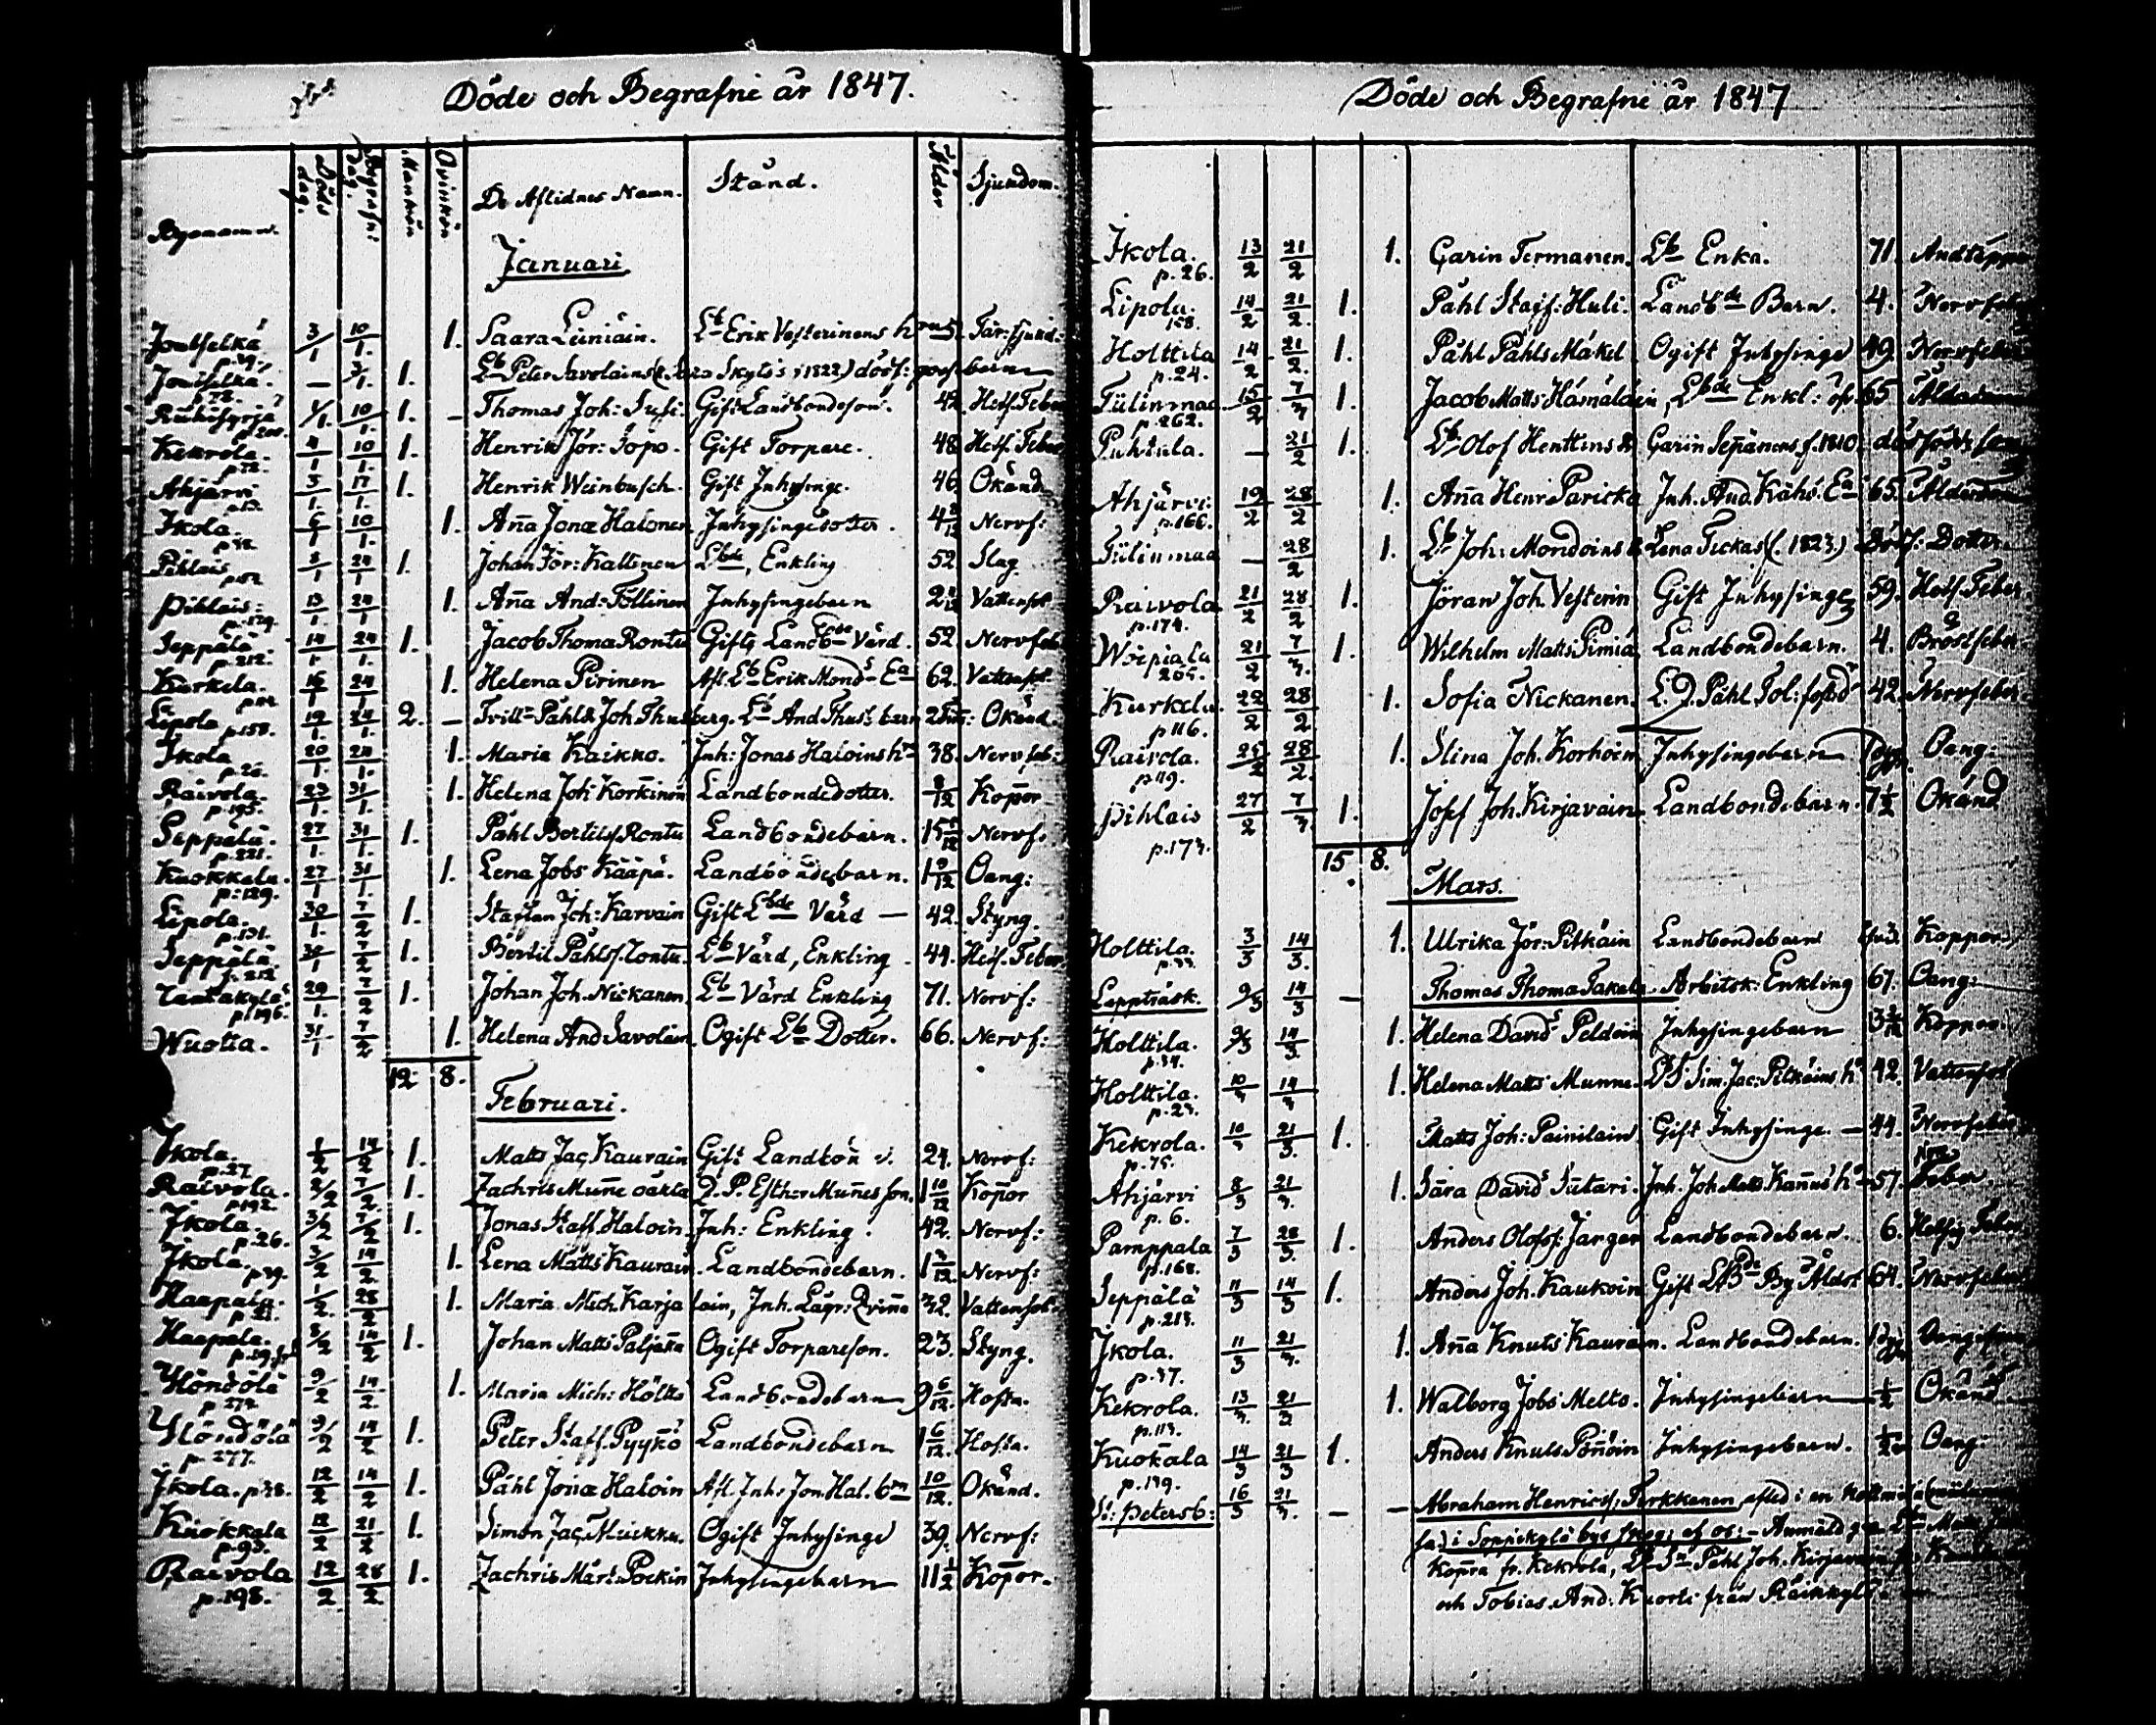 Döde och Begrafne år 1847.
Bynamn. Döds dag. Begrafn: dag. Mankön Qvinkön De Aflidnes Namn. Stånd. Ålder Sjukdom.
Januari
Joutselkä p. 3/1 10/1. 1. Saara Leiniäin. Lb Erik Vesterinens hru 51. Tär: sjukd:
Joutselkä. p.78. — 3/1. 1. Lb Peter Savolains (f. 1822) dödf: gossebarn
p.200. 1/1. 10/1. 1. — Thomas Joh: Susi. Gift Landbondeson. 42. Hets. Feber
Kekrola. p.72. 4/1 10/1. 1. Henrik Jör: Sopo. Gift Torpare. 48 Hets. Feber
Ahjärvi 5/1. 17/1. 1. Henrik Weinbusch. Gift Inhysinge. 46. Okänd
Ikola. p.38 6/1 10/1. 1. Aña Jonæ Halonen Inhysingedotter. Nervf:
Pihlais 24/1 1. Johan Jör: Kallonen Lbde, Enkling 52. Slag
Pihlais: p.129. 13/1. 24/1. 1. Aña And: Töllinen Inhysingebarn Vattensot
Seppälä. p.212. 14/1. 24/1. 1. Jacob Thoma Rontu Gift, Landbde Värd. 52. Nervfeb
Kurkela. 16/1 24/1 1. Helena Pirinen Afl. Lb Erik Monds Ea 62. Vattensot.
Lipola p.158. 19/1. 24/1. 2. — Tvill: Påhl & Joh. Thusberg. Lb And Thus: barn Okänd.
Ikola p.26. 20/1. 24/1. 1. Maria Kaikko. Inh: Jonas Haloins hu 38. Nervfeb:
Raivola. p.195. 23/1. 31/1. 1. Helena Joh Korkinen Landbondedotter. Koppor
Seppälä. p.221. 27/1. 31/1. 1. Påhl Bertilsf. Rontu Landbondebarn. Nervf:
Kuokkala. p:129. 27/1 31/1 1. Lena Jobs Kääpä. Landbondebarn. Oang:
Lipola. p.131. 30/1. 7/2 1. Staffan Joh: Karvain Gift Lbde Värd — 42. Styng.
Seppälä. p.212 30/1 7/2 1. Bertil Påhlsf. Rontu. Lb Värd, Enkling. 44. Hets. Feber
p.196. 29/1. 7/2 1. Johan Joh. Nickanen Lb Värd Enkling 71. Nervf:
Wuotta. 31/1 7/2 1. Helena And Savolain Ogift Lb Dotter. 66. Nervf:
12 8.
Februari.
Ikola. p.27 1/2 14/2 1. Matts Jac. Kaurain Gift Landbon 24. Nervf:
Raivola. p.192. 2/2 7/2. 1. Zachris Muñe oäkta Q. P. Esther Muñes son. 1 10/12 Koppor
Ikola. p.26. 3/2 7/2 1. Jonas Staff. Haloin Inh: Enkling. 42. Nervf:
Ikola. p.39. 3/2 14/2 1. Lena Matts Kaurain. Landbondebarn. Nervf:
Haapala. p.21. 1/2. 28/2 1. Maria Mich Karjalain, Inh. Lägr: Qviña 32. Vattensot.
Haapala. 14/2 1. Johan Matts Paljaka Ogift Torpareson. 23. Styng.
Höndölä p.274. 9/2 14/2. 1. Maria Mich: Höltö Landbondebarn 9 6/12. Hosta.
Höndölä p.277. 9/2 14/2 1. Peter Staff. Pyykkö Landbondebarn 1 6/12. Hosta.
Ikola. p.38. 12/2 14/2 1. Påhl Jonæ Haloin Afl. Inh: Jon. Hal. bn 10/12. Okänd.
Kuokkala p.93. 12/2 21/2 1. Simon Jac. Muckku. Ogift Inhysinge 39. Nervf:
Raivola p.198. 12/2 28/2 1. Zachris Mårt: Pockin Inhysingebarn 11 1/2 Koppor.
Döde och Begrafne år 1847
Ikola. p.26. 13/2 21/2 1. Carin Termanen. Lb Enka. 71. Andtäppa
Lipola. 158. 14/2 21/2. 1. Påhl Staff: Huli. Landbde Barn. 4. Nervfeber
Holttila p.24. 14/2 21/2. 1. Påhl Påhls Mäkel Ogift Inhysinge 49. Nervfeber
Tiilinmaa p.262. 15/2 7/3 1. Jacob Matts Hämäläin, Lbde Enkl: 65 Ålderdom
Puhtula. — 21/2 1. Lb Olof Henttins h. Carin Sepänens f. 1810) dödfödd son
Ahjärvi: p.166. 19/2 28/2 1. Aña Henr Paricka Inh. And. Kähö: Ea 65. Ålderdom
Tiilinmaa — 28/2 1. Lb Joh: Mondoins h. Lena Tickas (f. 1823) Dödf: Dotter.
Raivola p.174. 21/2 28/2 1. Jöran Joh Vesterin Gift Inhysinge 59. Hets. Feber
Woipiala 205. 21/2 7/3. 1. Wilhelm Matts Pimiä Landbondebarn. 4. Bröstfeber
Kurkela. p.116. 22/2 28/2 1. Sofia Nickanen. 42. Nervfeber
Raivola. p.119. 25/2 28/2. 1. Elina Joh. Korhoin Inhysingebarn Oang:
Pihlais p.173. 27/2 7/3. 1. Josef Joh. Kirjavain Landbondebarn. 7 1/2 Okänd
15. 8.
Mars.
Holttila. p.33. 3/3 14/3. 1. Ulrika Jör: Pitkäin Landbondebarn Koppor.
Leppträsk. 9/3 14/3 — Thomas Thoma Takala. Arbitsk: Enkling 67. Oang:
Holttila. p.34. 9/3 14/3. 1. Helena Davids Peldoin Inhysingebarn Koppor.
Holttila. p.23. 10/3 14/3 1. Helena Matts Munne. Lb S: Sim. Jac: Pitkäins hu 42. Vattensot
Kekrola. p.75. 10/3 21/3. 1. Matts Joh: Painilain Gift Inhysinge. — 44. Nervfeber
Ahjärvi p. 6. 8/3 21/3. 1. Sara Davids Sutari. Inh. Joh Matts Kanus hu 57. feber.
Pamppala p.168. 7/3 28/3. 1. Anders Olofsf: Janger Landbondebarn. 6. Hetsig Feber
Seppälä p.213. 11/3 14/3 1. Anders Joh. Kaukoin Gift Lbde By Åldst 64. Nervfeber
Ikola. p.37. 11/3 21/3. 1. Aña Knuts Kaurain. Landbondebarn.
Kekrola. p.113. 13/3. 21/3 1. Walborg Jobs Melto. Inhysingebarn Okänd
Kuokala p.139. 14/3 21/3 1. Anders Knuts Pönöin Inhysingebarn. Oang:
St: Petersb: 16/3 21/3. — — Abraham Henricsf: Terkkanen
i Soppikylä by
fr. Kekrola, Påhl Joh. Kirjavain
och Tobias And: Kuorti från Räikkylä